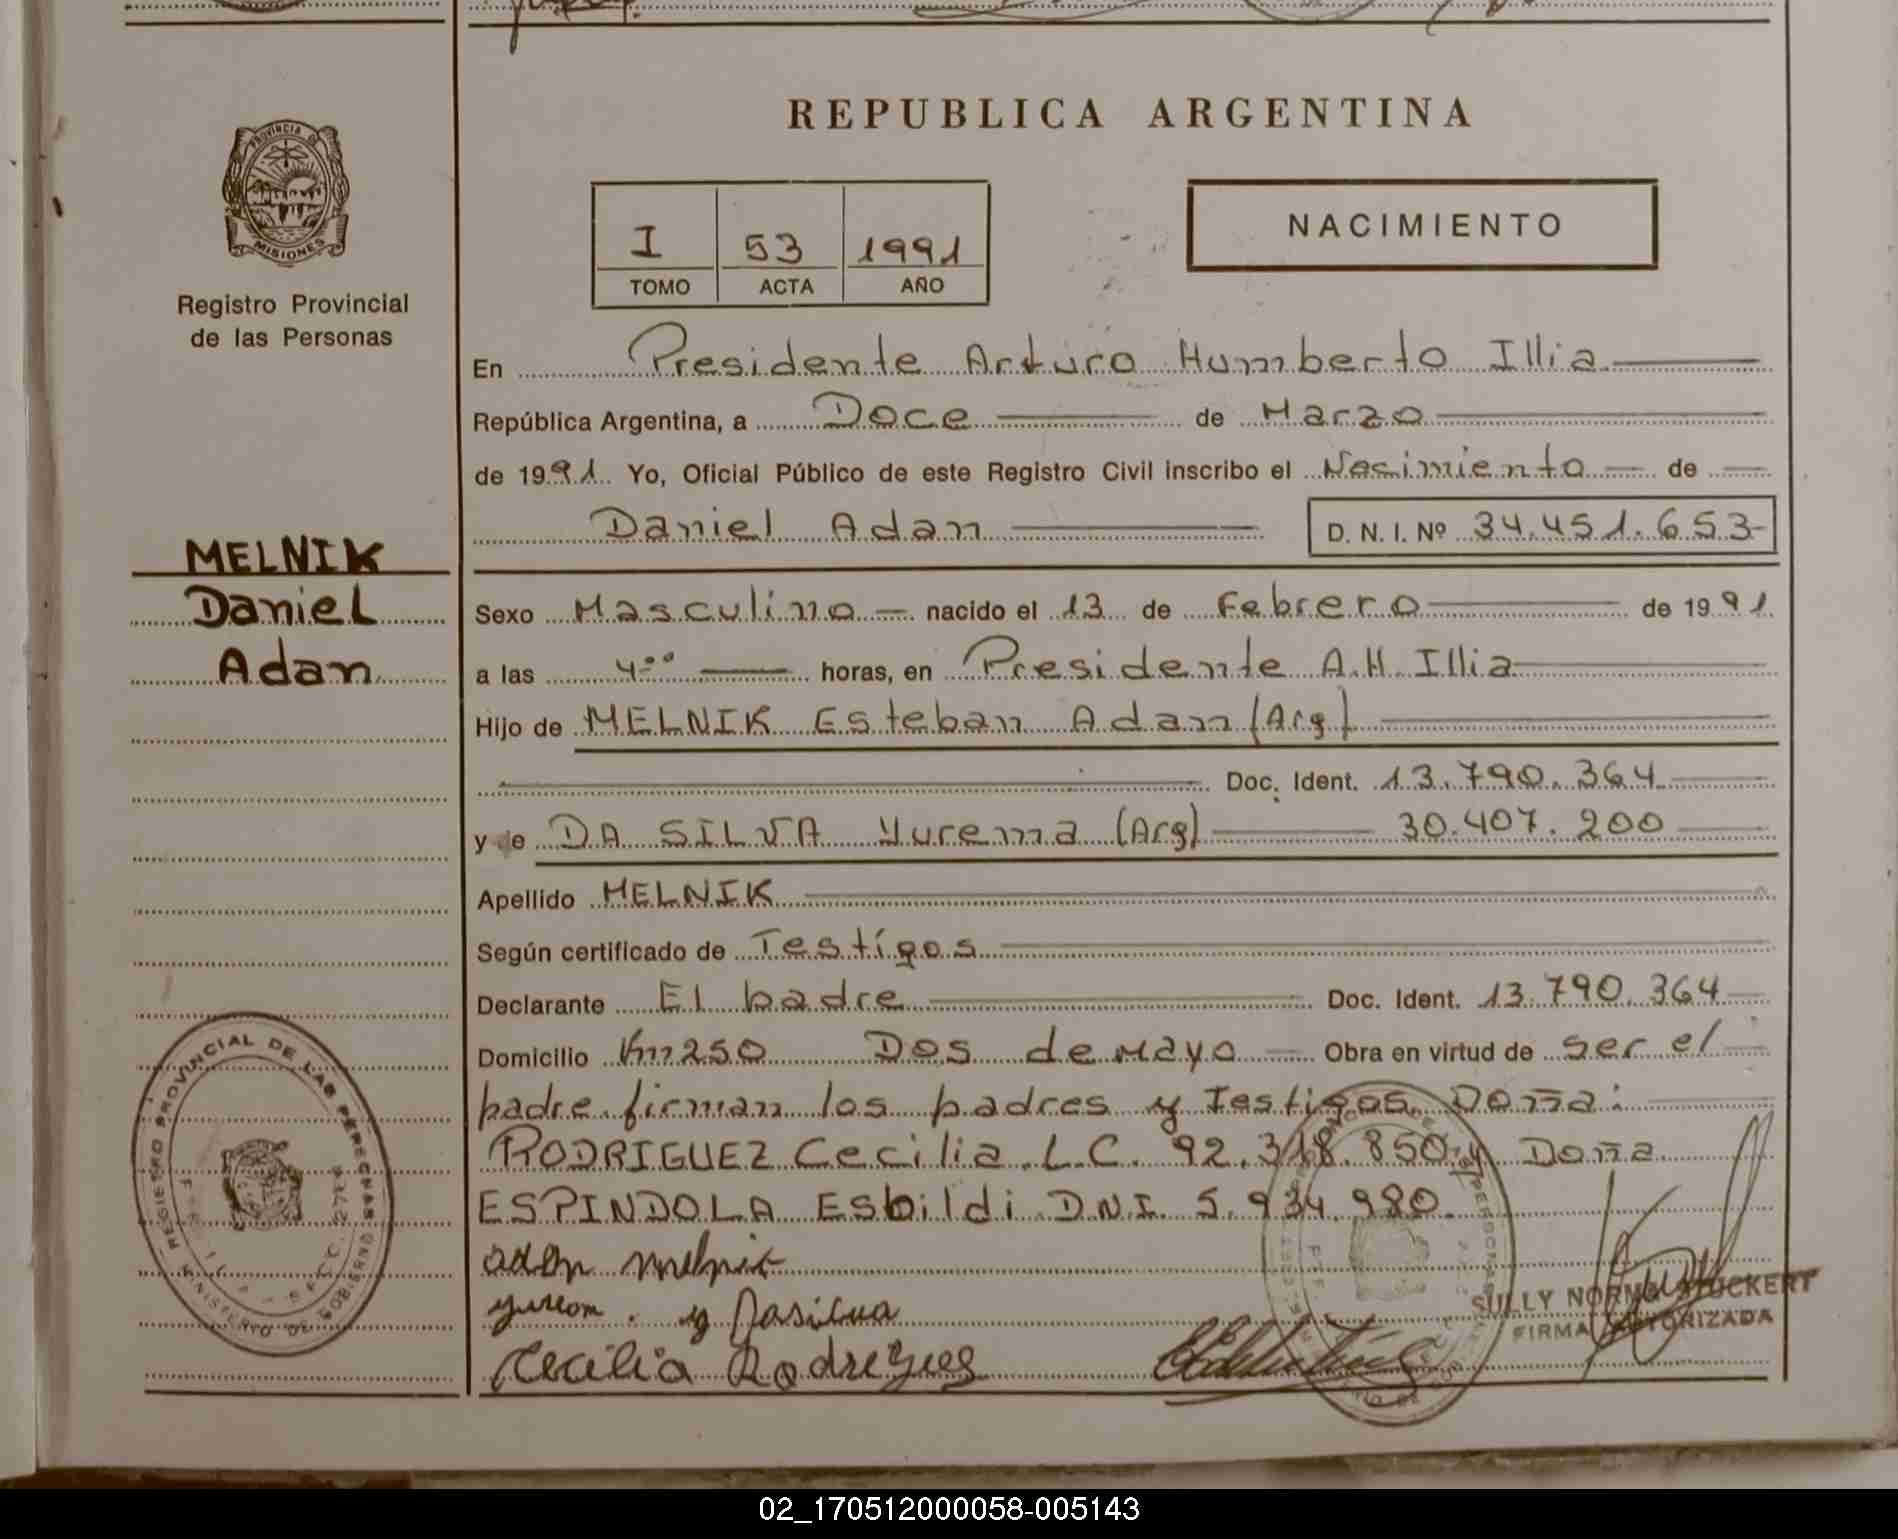 REPUBLICA ARGENTINA
PROVINCIA DE
MISIONES
Registro Provincial
de las Personas
I 53 1991
TOMO ACTA AÑO
NACIMIENTO
En Presidente Arturo Humberto Illia
República Argentina, a Doce de Marzo
de 1991 Yo, Oficial Público de este Registro Civil inscribo el Nacimiento de
Daniel Adan D. N. I. Nº 34.451.653
MELNIK
Daniel
Adan
Sexo Masculino nacido el 13 de Febrero de 1991
a las 4ºº horas, en Presidente A.H. Illia
Hijo de MELNIK Esteban Adan (Arg)
Doc. Ident. 13.790.364
y de DA SILVA Yurema (Arg) 30.407.200
Apellido MELNIK
Según certificado de Testigos
Declarante El padre Doc. Ident. 13.790.364
Domicilio Km 250 Dos de Mayo Obra en virtud de ser el
padre. firman los padres y Testigos. Doña:
RODRIGUEZ Cecilia L.C. 92.318.850 y Doña
ESPINDOLA Esbildi D.N.I. 5.934.980.
REGISTRO PROVINCIAL DE LAS PERSONAS
MINISTERIO DE GOBIERNO
adan melnik
y Dasilva
Cecilia Rodrigues
SULLY NORMA STUCKERT
FIRMA AUTORIZADA
02_170512000058-005143